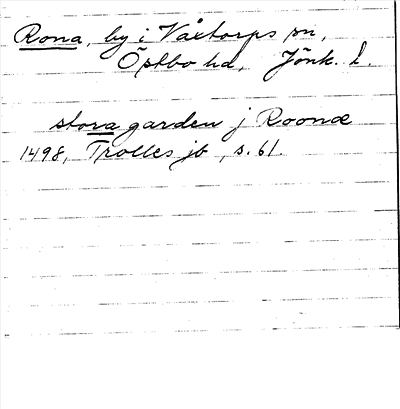 Rona, by i Våxtorps sn,
Östbo hd, Jönk. l.
stora garden j Roonæ
1498, Trolles jb, s. 61.